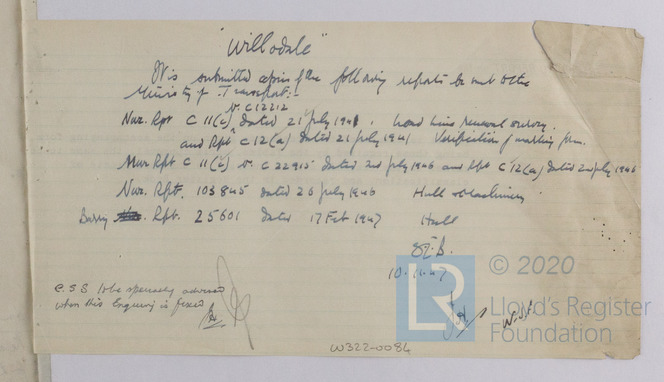 "Willodale"
It is submitted copies of the following reports be sent to the
Ministry of Transport:-
No. C12212
Nwc. Rpt C 11(c) dated 21 July 1941, Load Line renewal survey.
and Rpt C12(a) dated 21 July 1941 Verification of marking form.
Nwc Rpt C 11(c) No. C 22915 dated 2nd July 1946 and Rpt C12(a) dated 2nd July 1946
Nwc. Rpt. 103845 dated 26 July 1946 Hull & Machinery
Barry Rpt. 25601 dated 17 Feb 1947 Hull
10.10.47
C.S.S. to be specially advised
when this Enquiry is fixed
© 2020
LR
Lloyd's Register
Foundation
W322-0084